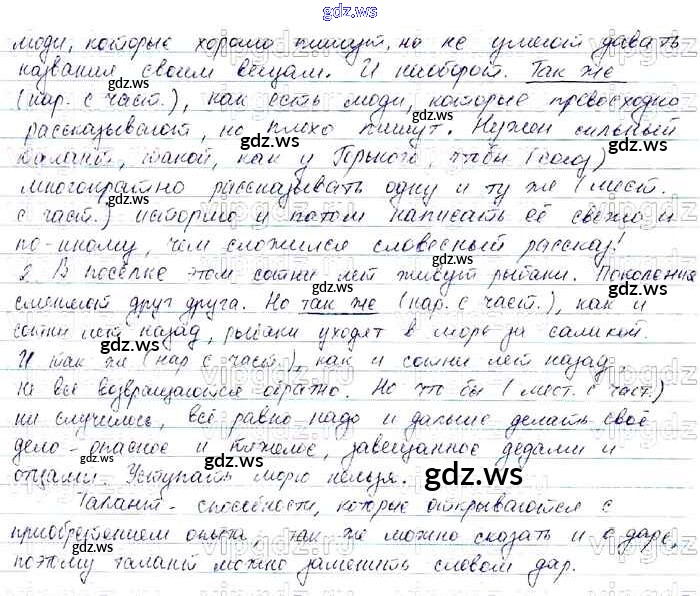 gdz.ws
люди, которые хорошо пишут, но не умеют давать
названия своим вещам. И наоборот. Так же
(нар. с част.), как есть люди, которые превосходно
рассказывают, но плохо пишут. Нужен сильный
талант, такой, как у Горького, чтобы (союз)
многократно рассказывать одну и ту же (мест.
с част.) историю и потом написать её свежо и
по-иному, чем сложился словесный рассказ!
2. В поселке этом сотни лет живут рыбаки. Поколения
сменяют друг друга. Но так же (нар. с част.), как и
сотни лет назад, рыбаки уходят в море за салакой.
И так же (нар. с част.), как и сотни лет назад,
не все возвращаются обратно. Но что бы (мест. с част.)
ни случилось, всё равно надо и дальше делать своё
дело - опасное и тяжелое, завещанное дедами и
отцами. Уступать морю нельзя.
Талант - способности, которые открываются с
приобретением опыта, так же можно сказать и о даре,
поэтому талант можно заменить словом дар.